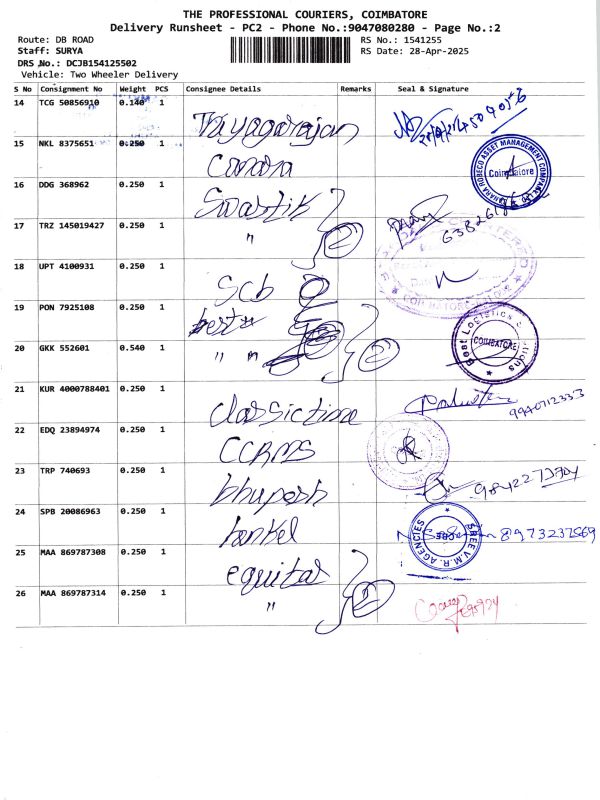 THE PROFESSIONAL COURIERS, COIMBATORE
Delivery Runsheet - PC2 - Phone No.:9047080280 - Page No.:2
Route: DB ROAD
RS No.: 1541255
Staff: SURYA
RS Date: 28-Apr-2025
DRS No.: DCJB154125502
Vehicle: Two Wheeler Delivery
S No Consignment No Weight PCS Consignee Details Remarks Seal & Signature
14 TCG 50856910 0.140 1 Tayagarajan
15 NKL 8375651 0.250 1 Canara
CANARA ROBECO ASSET MANAGEMENT COMPANY LTD
Coimbatore
16 DDG 368962 0.250 1 Swastik 2
17 TRZ 145019427 0.250 1 "
18 UPT 4100931 0.250 1 Scb
COIMBATORE
19 PON 7925108 0.250 1 best 2
20 GKK 552601 0.540 1 "
COIMBATORE
21 KUR 4000788401 0.250 1 Classic time 9940712333
22 EDQ 23894974 0.250 1 CCRMS
23 TRP 740693 0.250 1 bhupesh
24 SPB 20086963 0.250 1 hankel 8973237569
SREE V.M.R. AGENCIES
CBE
25 MAA 869787308 0.250 1 equitas 2
26 MAA 869787314 0.250 1 "